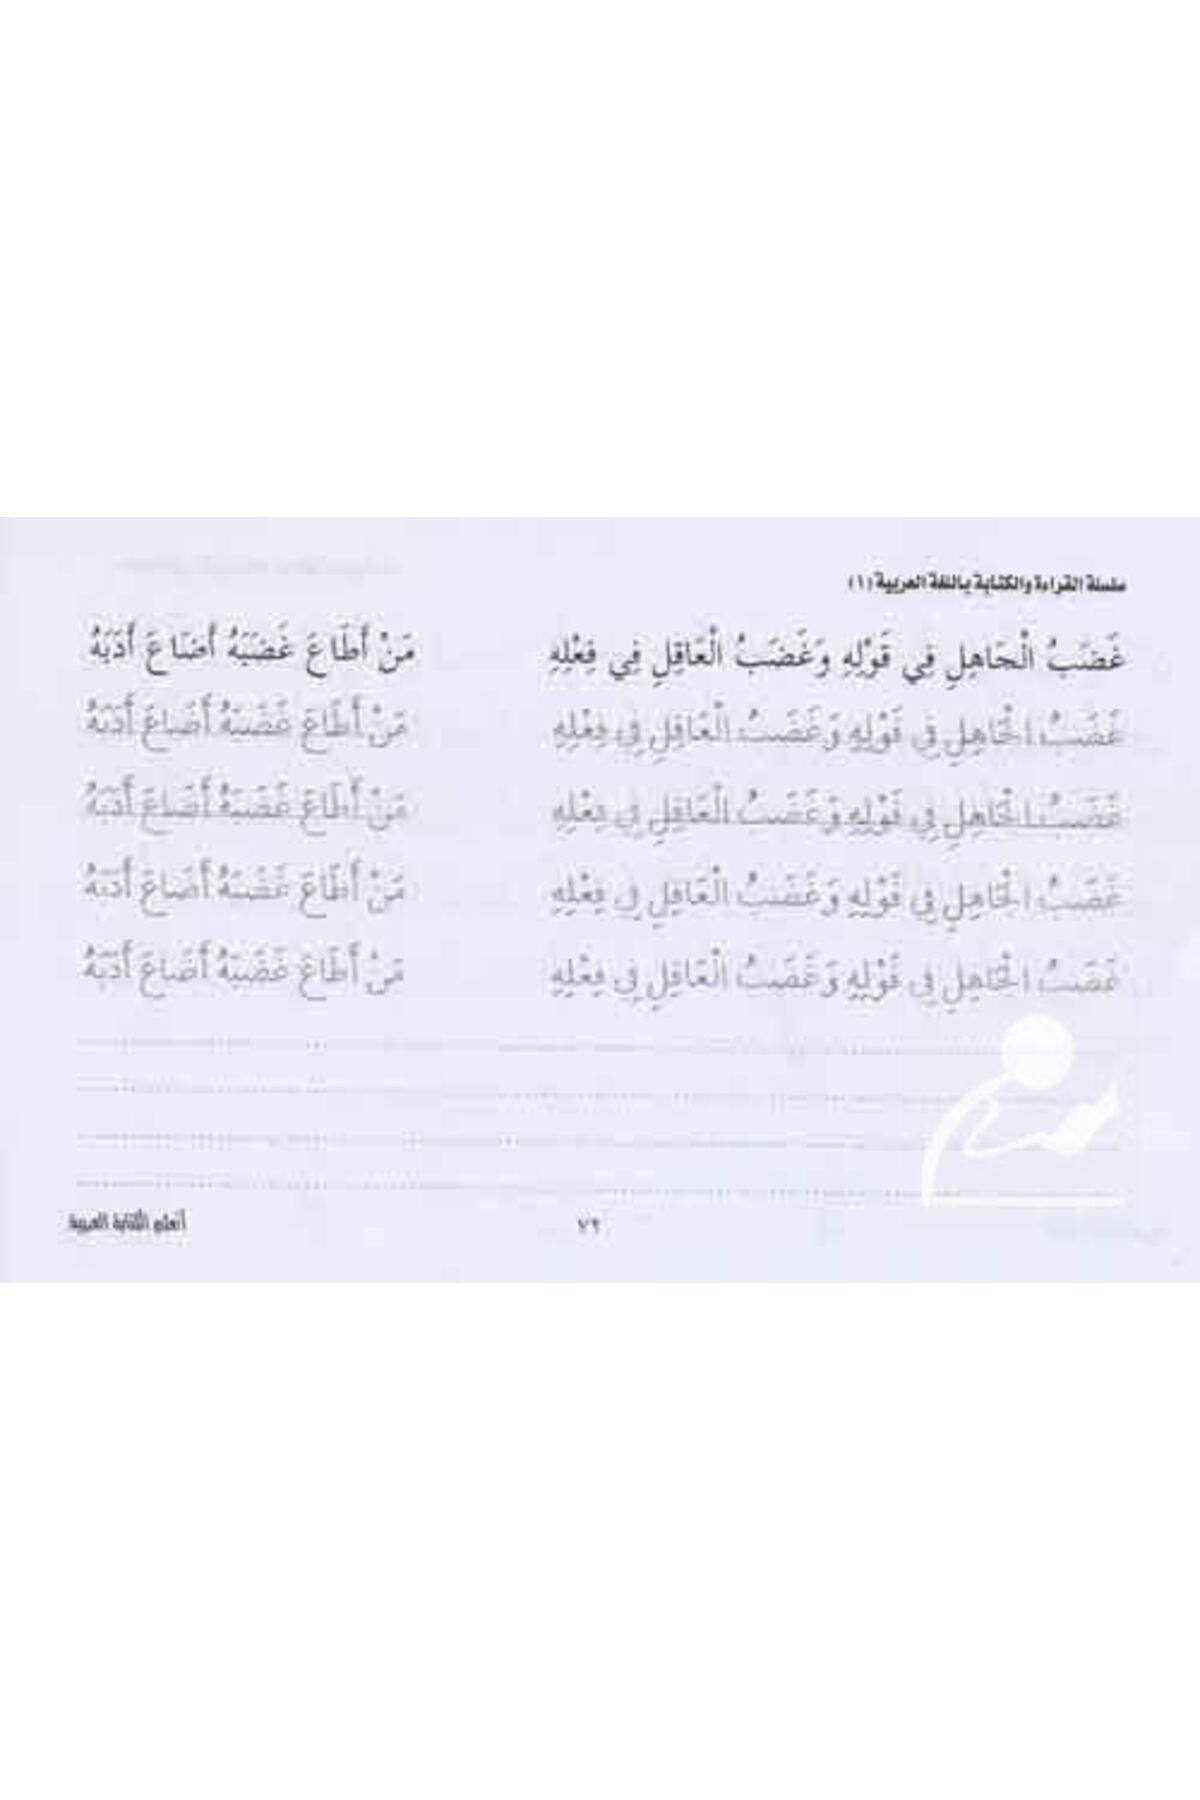 سلسلة القراءة والكتابة باللغة العربية (١)
غَضَبُ الْجَاهِلِ فِي قَوْلِهِ وَغَضَبُ الْعَاقِلِ فِي فِعْلِهِ مَنْ أَطَاعَ غَضَبَهُ أَضَاعَ أَدَبَهُ
غَضَبُ الْجَاهِلِ فِي قَوْلِهِ وَغَضَبُ الْعَاقِلِ فِي فِعْلِهِ مَنْ أَطَاعَ غَضَبَهُ أَضَاعَ أَدَبَهُ
غَضَبُ الْجَاهِلِ فِي قَوْلِهِ وَغَضَبُ الْعَاقِلِ فِي فِعْلِهِ مَنْ أَطَاعَ غَضَبَهُ أَضَاعَ أَدَبَهُ
غَضَبُ الْجَاهِلِ فِي قَوْلِهِ وَغَضَبُ الْعَاقِلِ فِي فِعْلِهِ مَنْ أَطَاعَ غَضَبَهُ أَضَاعَ أَدَبَهُ
غَضَبُ الْجَاهِلِ فِي قَوْلِهِ وَغَضَبُ الْعَاقِلِ فِي فِعْلِهِ مَنْ أَطَاعَ غَضَبَهُ أَضَاعَ أَدَبَهُ
٧٢ أتعلم الكتابة العربية